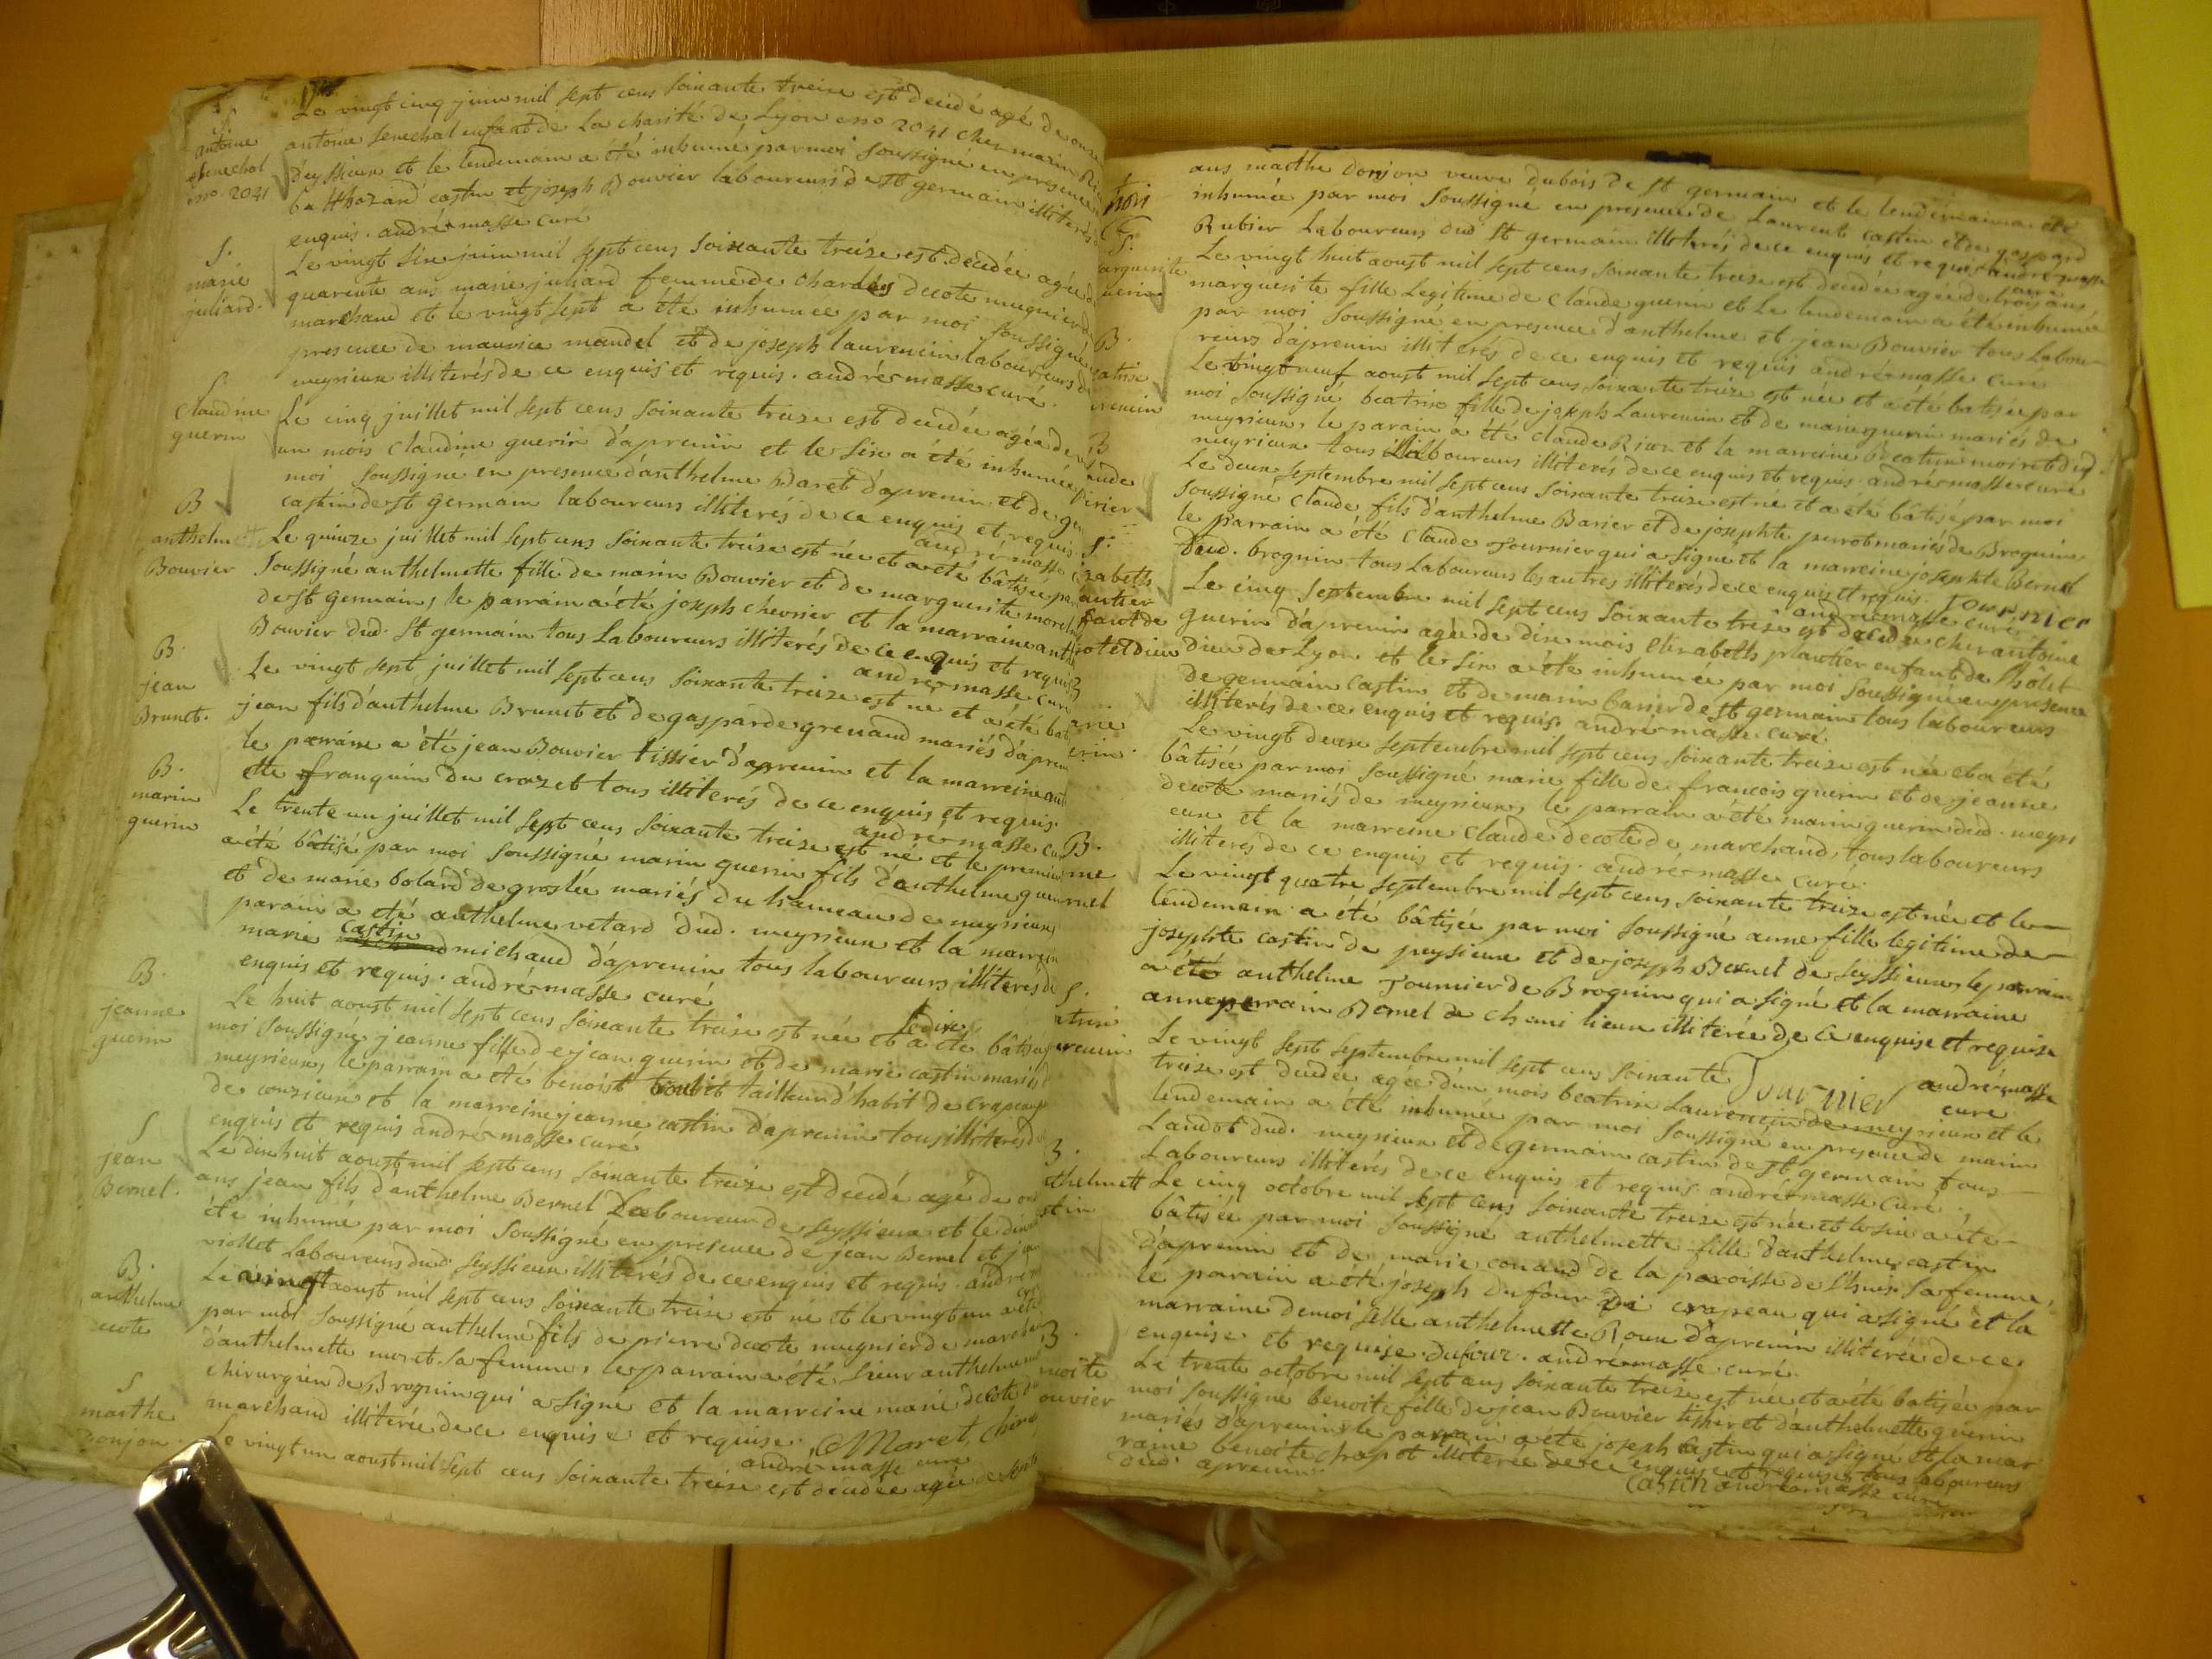 S.
antoine
senechal
no. 2041
Le vingt cinq juin mil sept cens soixante treize est decedé agé de onze
antoine senechal enfant de la charité de Lyon no 2041 cher marin
deyssieux et le lendemain a été inhumé par moi soussigné en presence
balthazard castin et joseph Bouvier laboureurs de st germain illiterés
enquis. andré masse curé
S.
marie
juliard.
Le vingt six juin mil sept cens soixante treize est decedée agée de
quarente ans marie juliard femme de charles decote mugnier de
marchand et le vingt sept a été inhumée par moi soussigné
presence de maurice mandel et de joseph laurencin laboureurs de
meyrieux illiterés de ce enquis et requis. andré masse curé.
S
Claudine
guerin
Le cinq juillet mil sept cens soixante treize est decedée agée de
un mois claudine guerin d'aprenin et le six a été inhumée
moi soussigné en presence d'anthelme Baret d'aprenin et de ger
castin de st germain laboureurs illiterés de ce enquis et requis
andré masse
B
anthelmette
Bouvier
Le quinze juillet mil sept cens soixante treize est née et a été bâtisée par
soussigné anthelmette fille de marin Bouvier et de marguerite morel
de st germain, le parrain a été joseph chevrier et la marraine anth
Bouvier dud. st germain tous Laboureurs illiterés de ce enquis et requis
andré masse curé
B.
jean
Brunet.
Le vingt sept juillet mil sept cens soixante treize est né et a été bat
jean fils d'anthelme Brunet et de gasparde grenaud mariés d'apren
le parrain a été jean Bouvier tissier d'aprenin et la marreine ant
ette franquin du crozet tous illiterés de ce enquis et requis.
andré masse cur
B.
marin
guerin
Le trente un juillet mil sept cens soixante treize est né et le premier
a été bâtisé par moi soussigné marin guerin fils d'anthelme guerin
et de marie bolard de groslée mariés du hameau de meyrieux
parain a été anthelme vetard dud. meyrieux et la marrein
marie castin michaud d'aprenin tous laboureurs illiterés de
enquis et requis. andré masse curé
B.
jeanne
guerin
Le huit aoust mil sept cens soixante treize est née et le dix a été bâtisée
moi soussigné jeanne fille de jean guerin et de marie castin mariés
meyrieux, le parrain a été benoist toubit tailleur d'habit de crapeau
de conzieux et la marreine jeanne castin d'aprenin tous illiterés de
enquis et requis andré masse curé
S
jean
Bernel.
Le dixhuit aoust mil sept cens soixante treize est decedé agé de
ans jean fils d'anthelme Bernel Laboureur de seyssieux et le dixne
été inhumé par moi soussigné en presence de jean Bernel et j
viollet laboureurs dud. seyssieux illiterés de ce enquis et requis. andré m
B.
anthelme
decote
Le vingt aoust mil sept cens soixante treize est né et le vingt un a été
par moi soussigné anthelme fils de pierre decote mugnier de marchand
d'anthelmette moret sa femme, le parrain a été sieur anthelme
chirurgien de Brognin qui a signé et la marreine marie decote
marchand illiterée de ce enquise et requise. Moret, chir
andré masse curé
S
marthe
donjon.
Le vingt un aoust mil sept cens soixante treize est decedée agée de
ans marthe donjon veuve dubois de st germain et le lendemain a été
inhumée par moi soussigné en presence de Laurent castin et de gaspard
Rubier Laboureurs dud st germain illiterés de ce enquis et requis andré masse
curé
S.
arguerite
uerin
Le vingt huit aoust mil sept cens soixante treize est decedée agée de trois ans
marguerite fille legitime de claude guerin et le lendemain a été inhumée
par moi soussigné en presence d'anthelme et jean Bouvier tous Labou-
reurs d'aprenin illiterés de ce enquis et requis andré masse curé
B.
eatrix
urencin
Le vingt neuf aoust mil sept cens soixante treize est née et a été batisée par
moi soussigné beatrix fille de joseph Laurencin et de marie guerin mariés de
meyrieux, le parain a été claude Rion et la marreine beatrix moiret dud.
meyrieux tous laboureurs illiterés de ce enquis et requis. andré masse curé
B
aude
Le deux septembre mil sept cens soixante treize est né et a été bâtisé par moi
soussigné claude fils d'anthelme Barier et de josephte perrot mariés de Brognin
le parrain a été claude Tournier qui a signé et la marreine josephte Bernel
dud. brognin tous Laboureurs les autres illiterés de ce enquis et requis. Tournier
andré masse curé
S.
izabeth
lautier
hotel dieu
Le cinq septembre mil sept cens soixante treize est decedée cher antoine
guerin d'aprenin agée de dix mois elizabeth plautier enfant de l'hôtel
dieu de Lyon et le six a été inhumée par moi soussigné en presence
de germain castin et de marin barier de st germain tous laboureurs
illiterés de ce enquis et requis andré masse curé.
B
arie
erin.
Le vingt deux septembre mil sept cens soixante treize est née et a été
bâtisée par moi soussigné marie fille de francois guerin et de jeanne
decote mariés de meyrieux, le parrain a été marin guerin dud. meyri
eux et la marreine claude decote de marchand, tous laboureurs
illiterés de ce enquis et requis. andré masse curé.
B.
nne
rnel
Le vingt quatre septembre mil sept cens soixante treize est née et le
lendemain a été bâtisée par moi soussigné anne fille legitime de
josephte castin de peysieux et de joseph Bernel de seyssieux, le parrain
a été anthelme Tournier de Brognin qui a signé et la marraine
anne perrain Bernel de chemilieu illiterée de ce enquise et requise
Tournier andré masse
curé
S.
atrix
urencin
Le vingt sept septembre mil sept cens soixante
treize est decedée agée d'un mois beatrix Laurencin de meyrieux et le
lendemain a été inhumée par moi soussigné en presence de marin
Landot dud. meyrieux et de germain castin de st germain tous
Laboureurs illiterés de ce enquis et requis andré masse curé.
B.
thelmett
stin
Le cinq octobre mil sept cens soixante treize est née et le six a été
bâtisée par moi soussigné anthelmette fille d'anthelme castin
d'aprenin et de marie conand de la paroisse de l'huis sa femme,
le parain a été joseph dufour de crapeau qui a signé et la
marraine demoiselle anthelmette Roux d'aprenin illiterée de ce
enquise et requise. Dufour. andré masse curé.
B.
noite
ouvier
Le trente octobre mil sept cens soixante treize est née et a été batisée par
moi soussigné benoite fille de jean Bouvier tissier et d'anthelmette guerin
mariés d'aprenin le parrain a été joseph castin qui a signé et la mar
raine benoite chapet illiterée de ce enquise et requise tous laboureurs
dud. aprenin. Castin andré masse curé